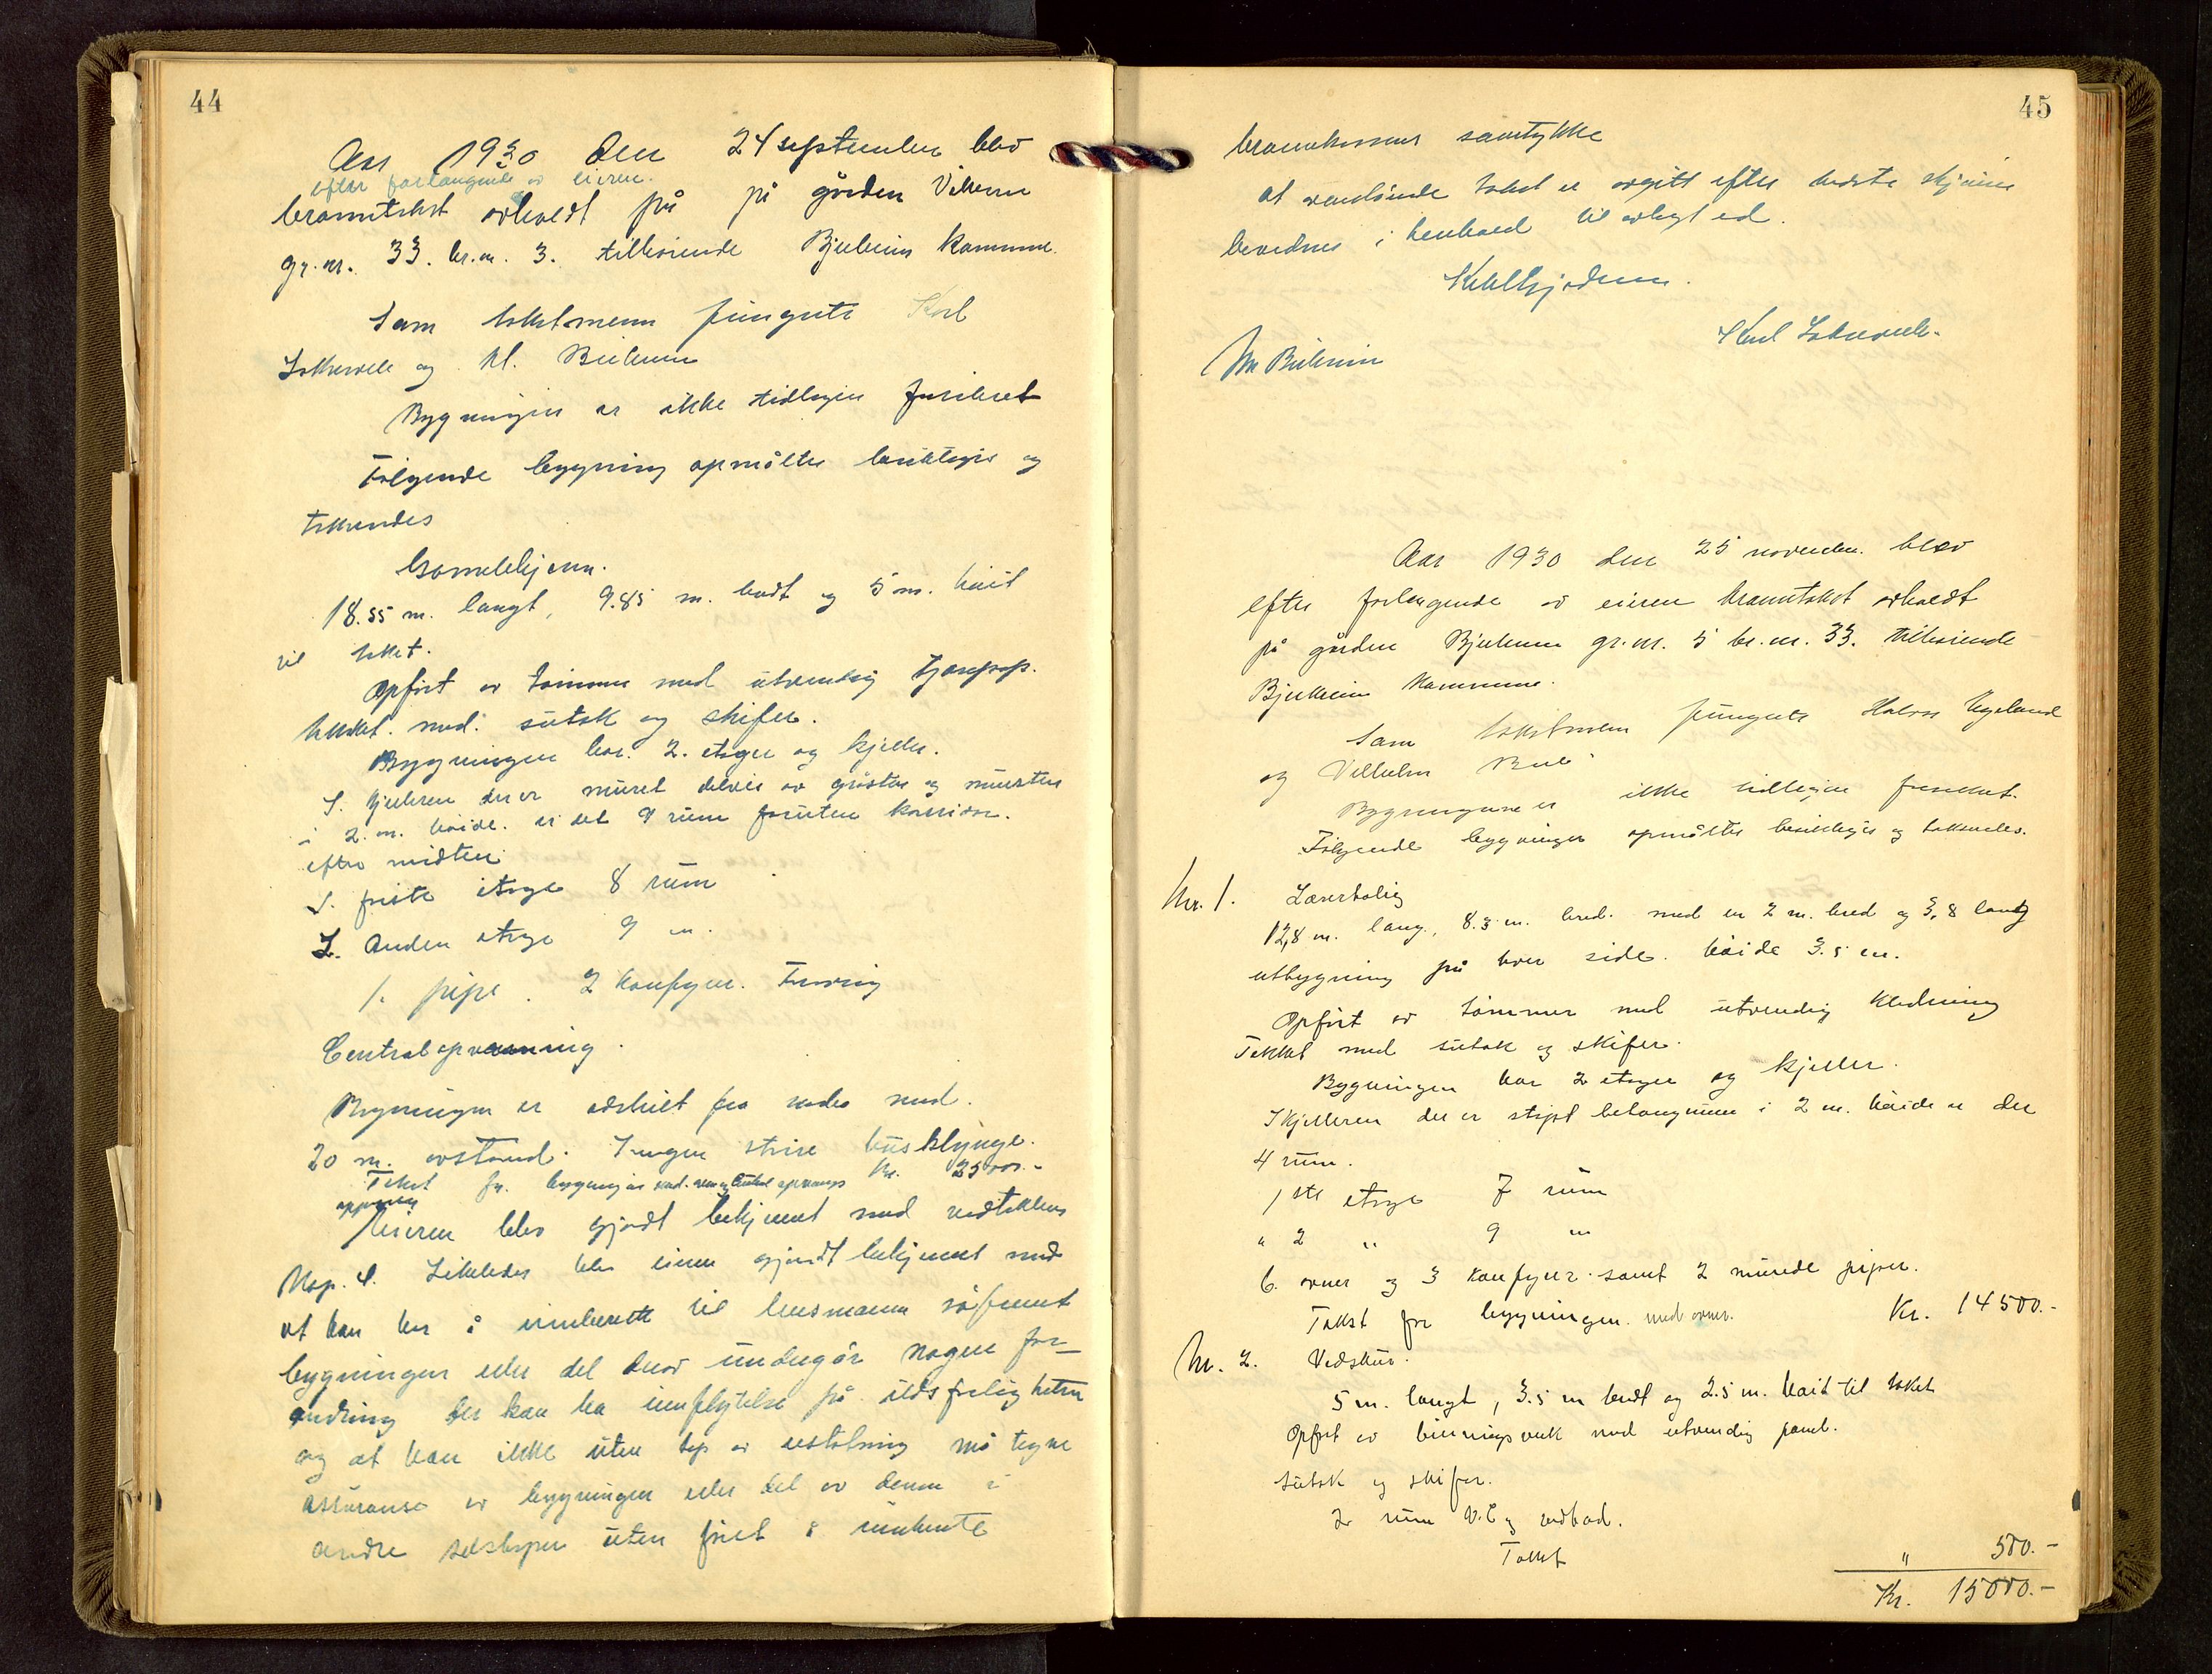 44
Aar 1930 den 24 september blev
efter forlangende av eieren.
branntakst avholdt på på gården Vikesaa
gr. nr. 33. br. nr. 3. tilhørende Bjerkreim kommune.
Som takstmenn fungerte Karl
og M. Birkeim
Bygningen er ikke tidligere forsikret
Følgende bygning opmåltes besiktiges og
takseredes
Gamlehjem.
18.55 m. langt, 9.85 m. bredt og 5 m. høit
til taket.
Opført av tømmer med utvendig
tekket med sutak og skifer.
Bygningen har 2. etager og kjeller.
I. kjelleren der er muret delvis av gråsten og mursten
i 2. m. høide. er det 9 rum foruten korridor.
efter midten
I. første etage 8 rum
I. anden etage 9 "
1. pipe. 2 komfyrer.
Centralopvarmning.
Bygningen er adskilt fra andre med
20 m. avstand. Ingen større husklynge.
Takst for bygningen Kr. 25000.-
Eieren blev gjordt bekjennt med vedtektens
Kap. 4. Likeledes blev eieren gjordt bekjennt med
at han har å innberette til lensmann såfremt
bygningen eller del derav undergår nogen for-
andring der kan ha innflytelse på ildsfarligheten
og at han ikke uten tap av erstatning må tegne
assuranse av bygningen eller del av denne i
andre selskaper uten først å innhente
45
brannkassens samtykke
at ovenstående takst er avgitt efter bedste skjønn
bevidnes i henhold til avlagt ed.
M Birkeim
Aar 1930 den 25 november blev
efter forlangende av eieren branntakst avholdt
på gården Bjerkreim gr. nr. 5 br. nr. 33. tilhørende
Bjerkreim kommune.
Som takstmenn fungerte Halvor Vigeland
og Vilhelm
Bygningene er ikke tidligere forsikret.
Følgende bygninger opmåltes besiktiges og takseredes.
Nr. 1. Lærerbolig
12,8 m. lang, 8.3 m. bred. med en 2 m. bred og 3,8 lang
utbygning på hver side. høide 3.5 m.
Opført av tømmer med utvendig kledning
Tekket med sutak og skifer.
Bygningen har 2 etager og kjeller.
I kjelleren der er støpt betongmur i 2 m. høide er der
4 rum.
1ste etage 7 rum
" 2 " 9 "
6. ovner og 3 komfyrer samt 2 murede piper.
Takst for bygningen. med ovner. Kr. 14500.-
Nr. 2. Vedskur.
5 m. langt, 3.5 m bredt og 2.5 m. høit til taket
Opført av bindingsverk med utvendig panel.
Sutak og skifer.
2 rum V.C og vedbod.
Takst " 500.-
Kr. 15000.-